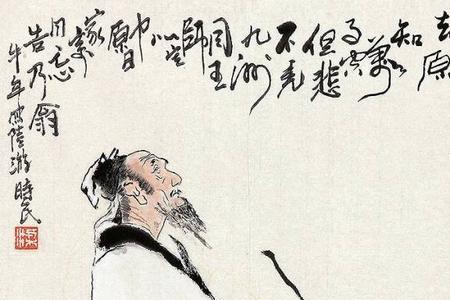 去原
知萬
事空
但悲
不見
九洲
同王
師
北定
中原日
家祭
毋忘
告乃翁
牛年寫陸游 時民